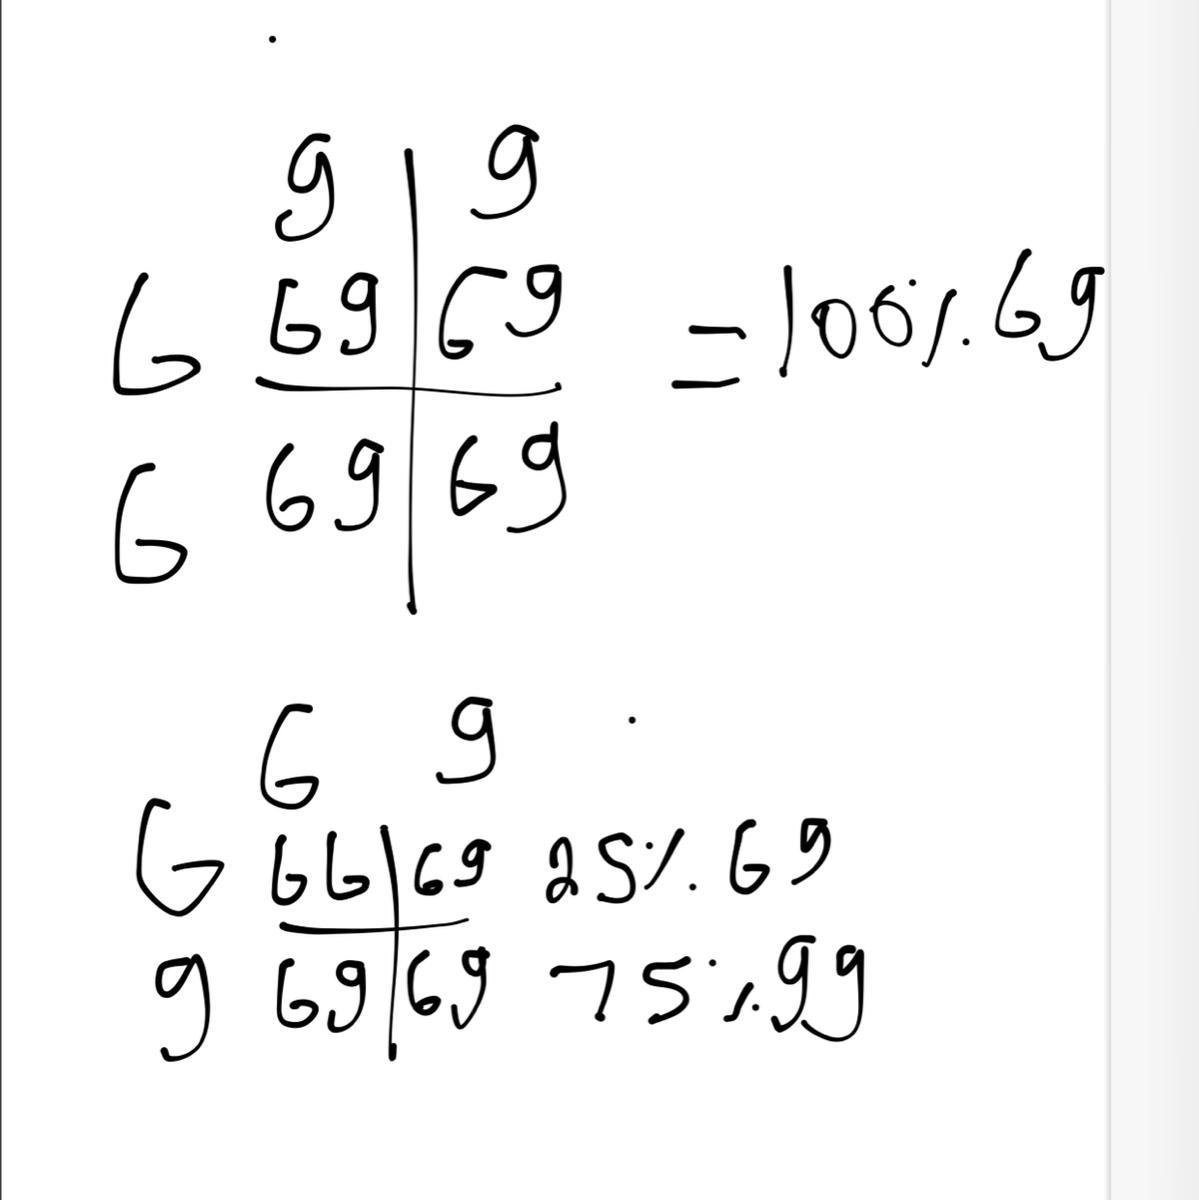 g g
G Gg Gg = 100% Gg
G Gg Gg
G g
G GG Gg 25% Gg
g Gg Gg 75% gg